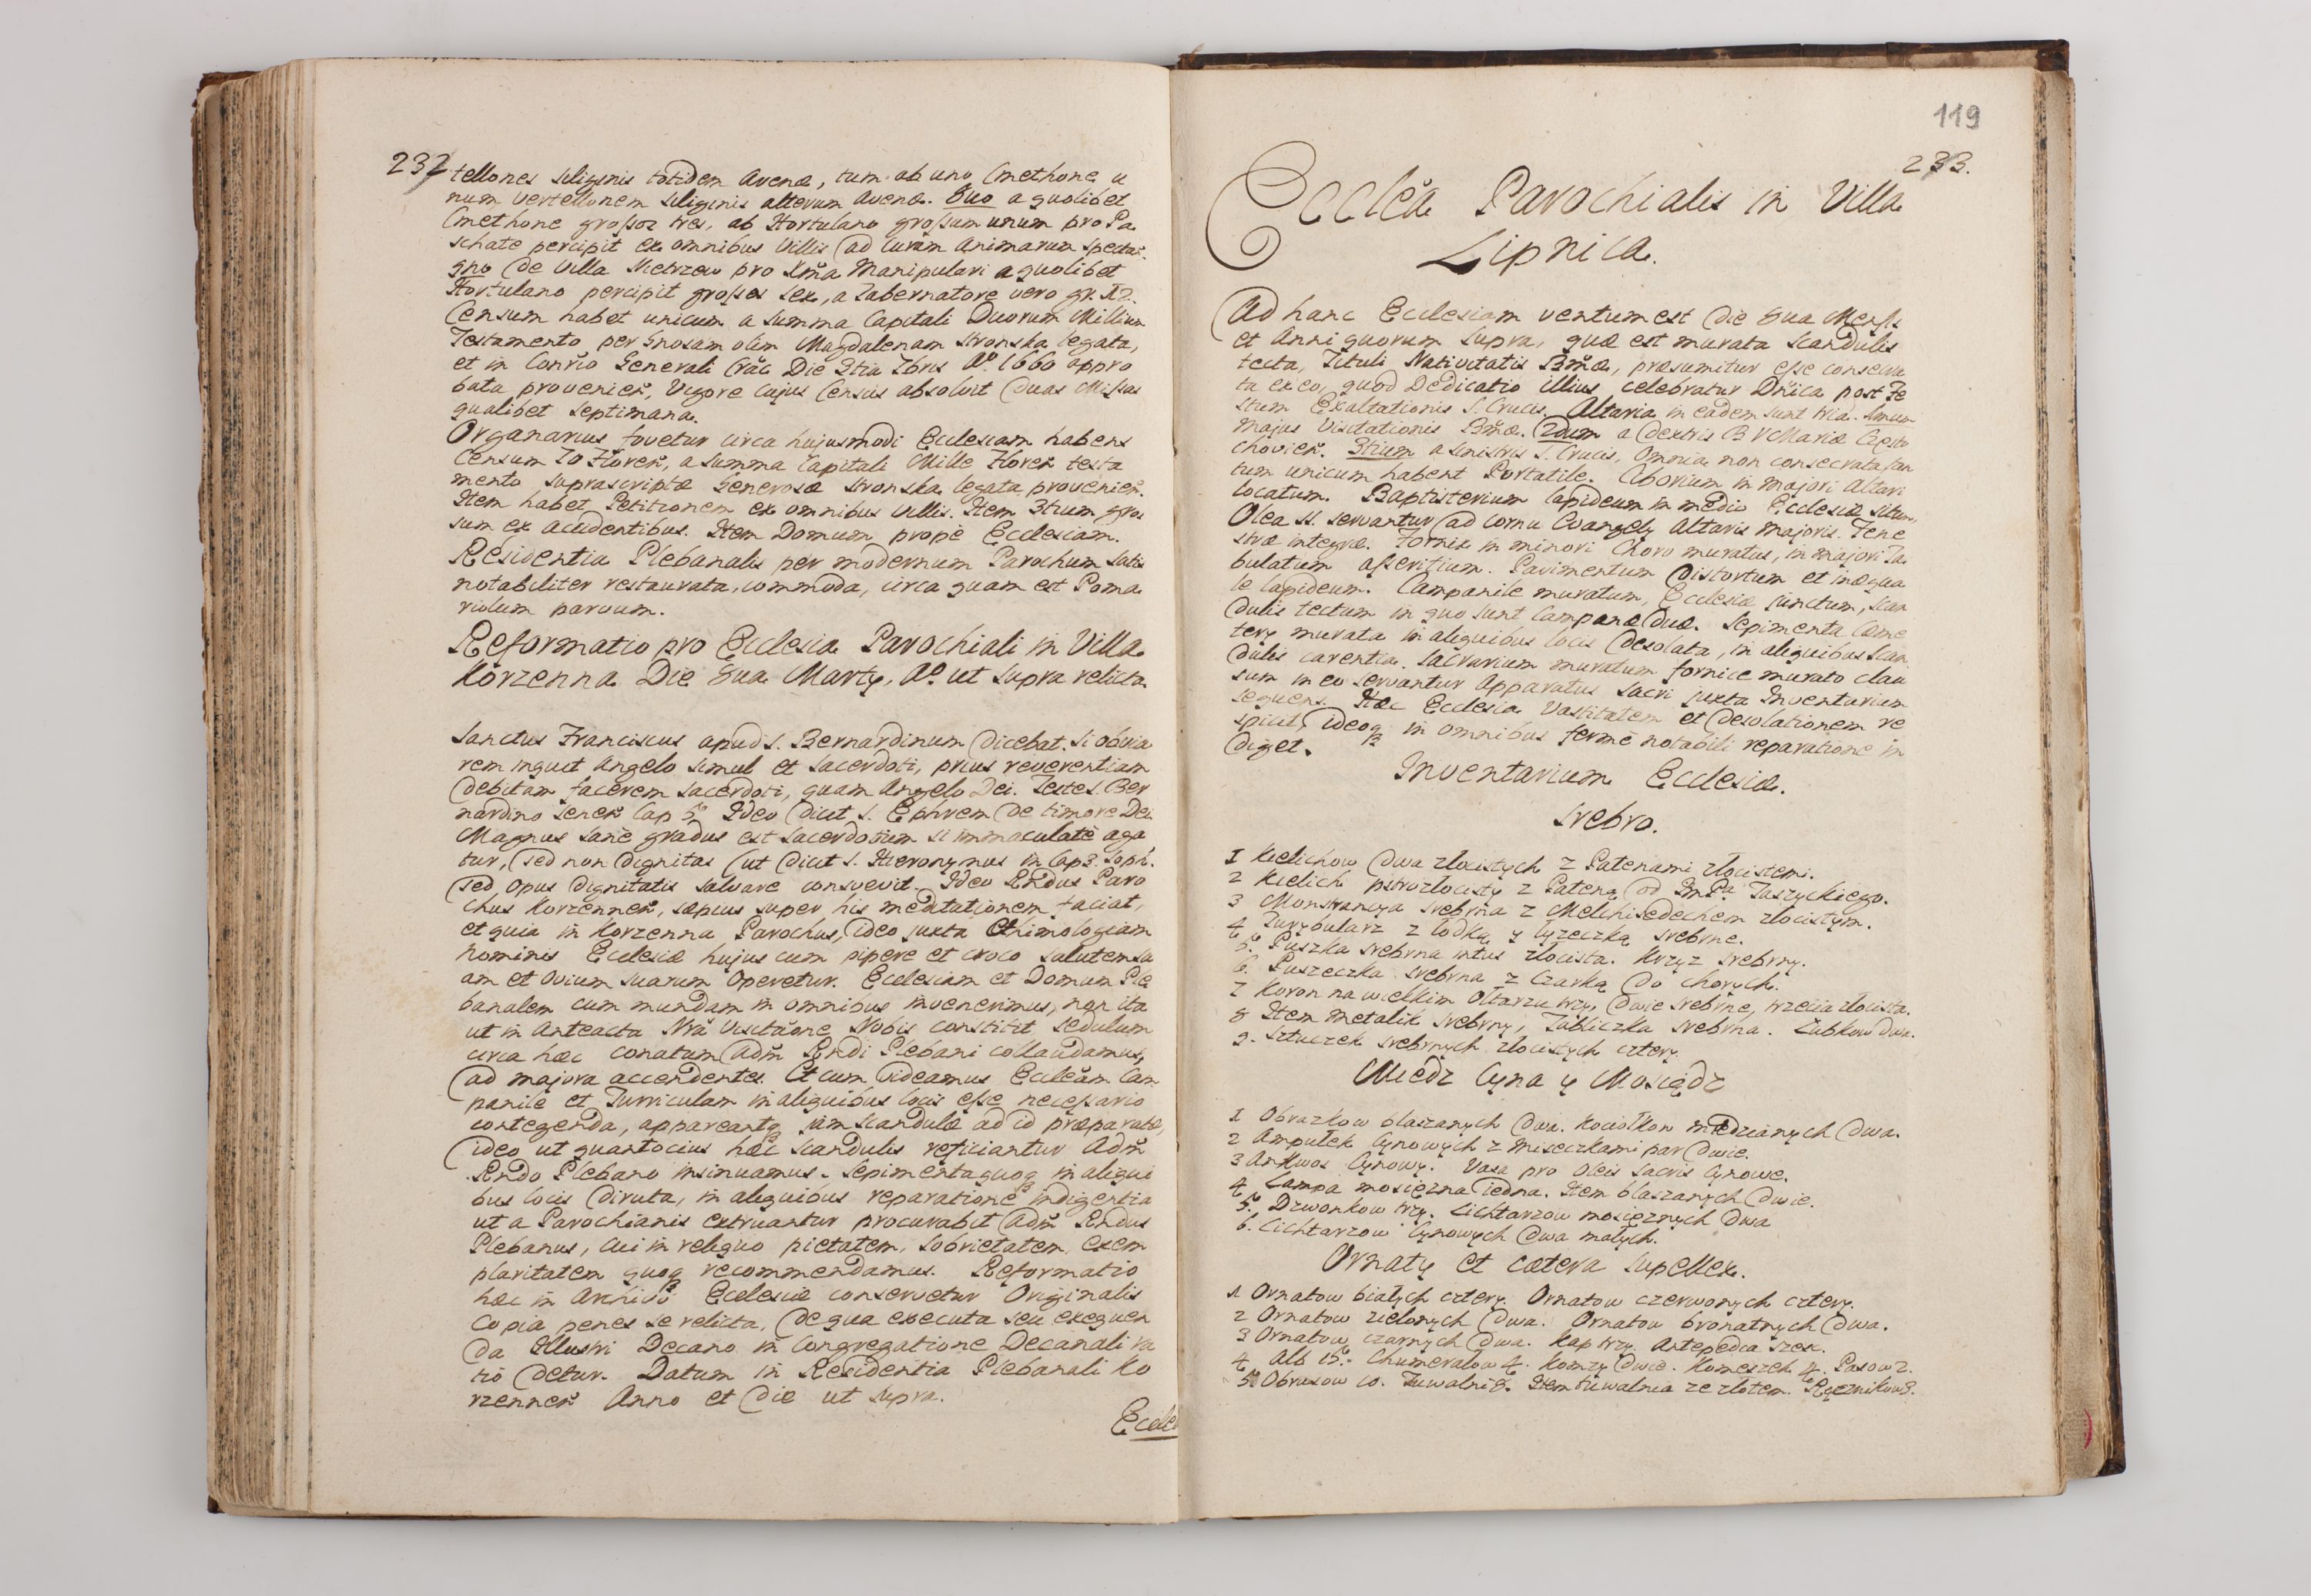 232
tellones siliginis totidem avenæ, tum ab uno Cmethone u
num vertellonem siliginis alterum avenæ. 8vo a quolibet
Cmethone grossos tres, ab Hortulano grossum unum pro Pa
schate percipit ex omnibus Villis ad Curam Animarum spectan.
9no de Villa Nietrzew pro Xma Manipulari a quolibet
Hortulano percipit grossos sex, a Tabernatore vero gr. 12.
Censum habet unicum a summa Capitali Duorum Millium
Testamento per Gnosam olim Magdalenam Stronska legata,
et in Conrio Generali Crac Die 3tia 7bris Ao. 1660 appro
bata provenien, Vigore cujus Census absolvit duas Missas
qualibet septimana.
Organarius fovetur circa hujusmodi Ecclesiam habens
Censum 70 Floren, a summa Capitali Mille Floren testa
mento suprascriptæ Generosæ Stronska legata provenien.
Item habet Petitionem ex omnibus Villis. Item 3tium gros
sum ex accidentibus. Item Domum propè Ecclesiam.
Residentia Plebanalis per modernum Parochum satis
notabiliter restaurata, commoda, circa quam est Poma
riolum parvum.
Reformatio pro Ecclesia Parochiali in Villa
Korzenna Die 8va Martij, Ao. ut supra relicta
Sanctus Franciscus apud S. Bernardinum dicebat. Si obvia
rem inquit Angelo simul et Sacerdoti, prius reverentiam
debitam facerem Sacerdoti, quam Angelo Dei. Teste S. Ber
nardino Senen Cap 5. Ideo dicit S. Ephrem de timore Dei
Magnus sanè gradus est Sacerdotium si immaculatè aga
tur, sed non dignitas (ut dicit S. Hieronymus in Cap 3. Soph.
sed opus dignitatis salvare consuevit. Ideo Rndus Paro
chus Korzennen, sæpius super his meditationem faciat,
et quia in Korzenna Parochus, ideo juxta Ethimologiam
nominis Ecclesiæ hujus cum pipere et croco salutem su
am et Ovium suarum Operetur. Ecclesiam et Domum Ple
banalem cum mundam in omnibus invenerimus, non ita
ut in anteacta Nra Visitaone Nobis constitit sedulum
circa hæc conatum Adm Rndi Plebani collaudamus,
ad majora accendentes. Et cum videamus Ecclêam Cam
panile et Turriculam in aliquibus locis esse necessario
contegenda, appareantq jam scandulæ ad id præparatæ,
ideo ut quantocius hæc scandulis reficiantur Adm
Rndo Plebano insinuamus. Sepimenta quoq in aliqui
bus locis diruta, in aliquibus reparatione indigentia
ut a Parochianis extruantur procurabit Adm Rndus
Plebanus, Cui in reliquo pietatem, sobrietatem, exem
plaritatem quoq recommendamus. Reformatio
hæc in Archivo Ecclesiæ conservetur Originalis
Copia penes se relicta, de qua executa seu exequen
da Illustri Decano in Congregatione Decanali ra
tio detur. Datum in Residentia Plebanali Ko
rzennen Anno et Die ut supra.
Eccle
119
233.
Ecclêa Parochialis in Villa
Lipnica.
Ad hanc Ecclesiam ventum est Die 8va Mensis
et Anni quorum supra, quæ est murata scandulis
tecta, Tituli Nativitatis Bmæ, præsumitur esse consecra
ta ex eo, quod Dedicatio illius celebratur Dnica post Fe
stum Exaltationis S. Crucis. Altaria in eadem sunt tria. 1mum
Majus Visitationis Bmæ. 2dum a dextris B V Mariæ Często
chovien. 3tium a sinistris S. Crucis, Omnia non consecrata tan
tum unicum habent Portatile. Ciborium in majori Altari
locatum. Baptisterium lapideum in medio Ecclesiæ situm,
Olea SS. servantur ad cornu Evangelij Altaris Majoris. Fene
stræ integræ. Fornix in minori Choro muratus, in majori Ta
bulatum asseritium. Pavimentum distortum et inæqua
le lapideum. Campanile muratum, Ecclesiæ junctum, scan
dulis tectum in quo sunt Campanæ duæ. Sepimenta Cæme
terij murata in aliquibus locis desolata, in aliquibus scan
dulis carentia. Sacrarium muratum fornice murato clau
sum in eo servantur Apparatus Sacri juxta Inventarium
sequens. Hæc Ecclesia Vastitatem et desolationem re
spicit, ideoq in omnibus fermè notabili reparatione in
diget.
Inventarium Ecclesiæ.
Srebro.
1 Kielichow dwa złocistych z Patenami złocistemi.
2 Kielich pstrozłocisty z Pateną od Im Pa Taszyckiego.
3 Monstrancya srebrna z Melchisedechem złocistym.
4 Turybularz z łodką y łyzeczką srebrne.
5. Puszka srebrna intus złocista. Krzyz srebrny.
6. Puszeczka srebrna z Czarką do Chorych.
7 Koron na wielkim Ołtarzu trzy, dwie srebrne, trzecia złocista.
8 Item Metalik srebrny, Tabliczka srebrna. Łubkow dwa.
9. Sztuczek srebrnych złocistych cztery.
Miedz Cyna y Mosiądz
1 Obrazkow blaszanych dwa. Kociołkow miedzianych dwa.
2 Ampułek Cynowych z miseczkami par dwie.
3 Ankwos Cynowy. Vasa pro Oleis Sacris Cynowe.
4 Lampa mosięzna iedna. Item blaszanych dwie.
5. Dzwonkow trzy. Lichtarzow mosięznych dwa
6. Lichtarzow Cynowych dwa małych.
Ornaty et cætera supellex.
1 Ornatow białych cztery. Ornatow czerwonych cztery.
2 Ornatow zielonych dwa. Ornatow bronatnych dwa.
3 Ornatow czarnych dwa. Kap trzy. Antepedia szesc.
4 Alb 15. Chumerałow 4. Komzy dwie. Komeszek 4. Pasow 2.
5 Obrusow 10. Tuwalni 8. Item tuwalnia ze złotem. Ręcznikow 3.